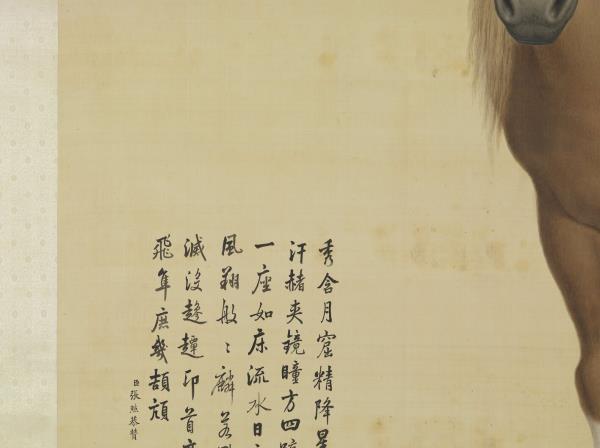 秀含月窟精降星
汗赭夾鏡瞳方四蹄
一座如床流水日
風翔般〻麟若
滅沒趁𨄅印首
飛隼庶幾頡頏
臣張照恭贊